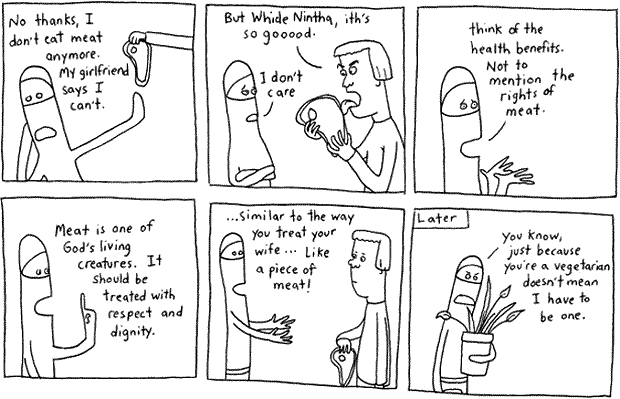 No thanks, I
don't eat meat
anymore.
My girlfriend
says I
can't.
But Whide Nintha, ith's
so gooood.
I don't
care
think of the
health benefits.
Not to
mention the
rights of
meat.
Meat is one of
God's living
creatures. It
should be
treated with
respect and
dignity.
...Similar to the way
you treat your
wife... Like
a piece of
meat!
Later
You know,
just because
you're a vegetarian
doesn't mean
I have to
be one.